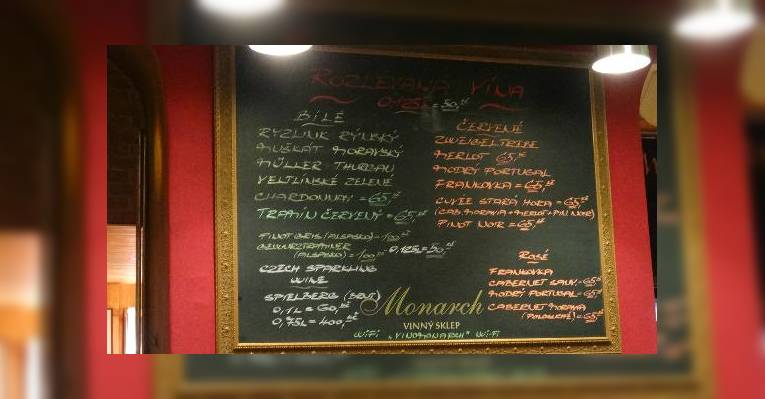 ROZLÉVANÁ VÍNA
0,125L = 50,-Kč
BÍLÉ
RYZLINK RÝNSKÝ
MUŠKÁT MORAVSKÝ
MÜLLER THURGAU
VELTLÍNSKÉ ZELENÉ
CHARDONNAY = 65,-Kč
TRAMÍN ČERVENÝ = 65,-Kč
PINOT GRIS (ALSASKO) = 100,-Kč
GEWURZTRAMINER
(ALSASKO) = 100,-Kč
0,125L = 50,-Kč
CZECH SPARKLING
WINE
SPIELBERG (BRUT)
0,1L = 60,-Kč
0,75L = 400,-Kč
ČERVENÉ
ZWEIGELTREBE
MERLOT 65,-Kč
MODRÝ PORTUGAL
FRANKOVKA = 65,-Kč
CUVÉE STARÁ HORA = 65,-Kč
(CAB. MORAVIA + MERLOT + PINOT NOIR)
PINOT NOIR = 65,-Kč
ROSÉ
FRANKOVKA
CABERNET SAUV. = 65,-Kč
MODRÝ PORTUGAL = 65,-Kč
CABERNET MORAVIA
(POLOSUCHÉ) = 65,-Kč
Monarch
VINNÝ SKLEP
WiFi „VINOMONARCH" WiFi